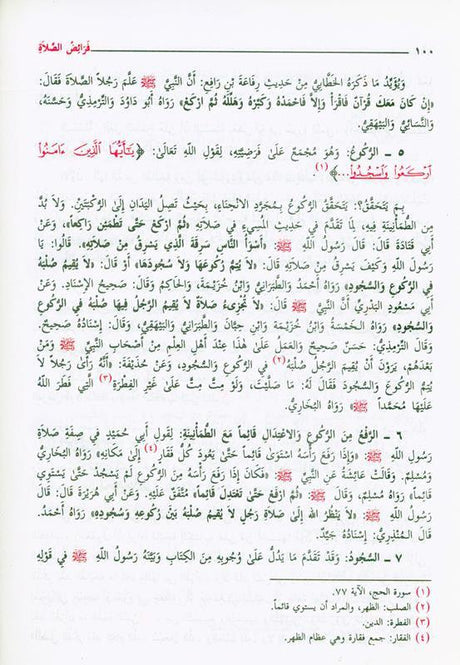 ١٠٠ فَرَائِضُ الصَّلَاةِ
وَيُؤَيِّدُ مَا ذَكَرَهُ الخَطَّابِيُّ مِنْ حَدِيثِ رِفَاعَةَ بْنِ رَافِعٍ: أَنَّ النَّبِيَّ ﷺ عَلَّمَ رَجُلاً الصَّلَاةَ فَقَالَ:
«إِنْ كَانَ مَعَكَ قُرْآنٌ فَاقْرَأْ وَإِلاَّ فَاحْمَدْهُ وَكَبِّرْهُ وَهَلِّلْهُ ثُمَّ ارْكَعْ» رَوَاهُ أَبُو دَاوُدَ وَالتِّرْمِذِيُّ وَحَسَّنَهُ،
وَالنَّسَائِيُّ وَالبَيْهَقِيُّ.
٥ ـ الرُّكُوعُ: وَهُوَ مُجْمَعٌ عَلَىٰ فَرَضِيَّتِهِ، لِقَوْلِ اللَّهِ تَعَالَىٰ: ﴿يَٰٓأَيُّهَا الَّذِينَ ءَامَنُوا
ارْكَعُوا وَاسْجُدُوا...﴾(١).
بِمَ يَتَحَقَّقُ؟: يَتَحَقَّقُ الرُّكُوعُ بِمُجَرَّدِ الانْحِنَاءِ، بِحَيْثُ تَصِلُ اليَدَانِ إِلَىٰ الرُّكْبَتَيْنِ. وَلاَ بُدَّ
مِنَ الطُّمَأْنِينَةِ فِيهِ، لِمَا تَقَدَّمَ فِي حَدِيثِ المُسِيءِ فِي صَلاَتِهِ «ثُمَّ ارْكَعْ حَتَّىٰ تَطْمَئِنَّ رَاكِعاً»، وَعَنْ
أَبِي قَتَادَةَ قَالَ: قَالَ رَسُولُ اللَّهِ ﷺ: «أَسْوَأُ النَّاسِ سَرِقَةً الَّذِي يَسْرِقُ مِنْ صَلاَتِهِ». قَالُوا: يَا
رَسُولَ اللَّهِ وَكَيْفَ يَسْرِقُ مِنْ صَلاَتِهِ؟ قَالَ: «لاَ يُتِمُّ رُكُوعَهَا وَلاَ سُجُودَهَا» أَوْ قَالَ: «لاَ يُقِيمُ صُلْبَهُ
فِي الرُّكُوعِ وَالسُّجُودِ» رَوَاهُ أَحْمَدُ وَالطَّبَرَانِيُّ وَابْنُ خُزَيْمَةَ، وَالحَاكِمُ وَقَالَ: صَحِيحُ الإِسْنَادِ. وَعَنْ
أَبِي مَسْعُودٍ البَدْرِيِّ أَنَّ النَّبِيَّ ﷺ قَالَ: «لاَ تُجْزِىءُ صَلاَةٌ لاَ يُقِيمُ الرَّجُلُ فِيهَا صُلْبَهُ فِي الرُّكُوعِ
وَالسُّجُودِ» رَوَاهُ الخَمْسَةُ وَابْنُ خُزَيْمَةَ وَابْنُ حِبَّانَ وَالطَّبَرَانِيُّ وَالبَيْهَقِيُّ، وَقَالَ: إِسْنَادُهُ صَحِيحٌ.
وَقَالَ التِّرْمِذِيُّ: حَسَنٌ صَحِيحٌ وَالعَمَلُ عَلَىٰ هَذَا عِنْدَ أَهْلِ العِلْمِ مِنْ أَصْحَابِ النَّبِيِّ ﷺ وَمَنْ
بَعْدَهُمْ، يَرَوْنَ أَنْ يُقِيمَ الرَّجُلُ صُلْبَهُ(٢) فِي الرُّكُوعِ وَالسُّجُودِ، وَعَنْ حُذَيْفَةَ: «أَنَّهُ رَأَىٰ رَجُلاً لاَ
يُتِمُّ الرُّكُوعَ وَالسُّجُودَ فَقَالَ لَهُ: مَا صَلَّيْتَ، وَلَوْ مِتَّ مِتَّ عَلَىٰ غَيْرِ الفِطْرَةِ(٣) الَّتِي فَطَرَ اللَّهُ
عَلَيْهَا مُحَمَّداً ﷺ» رَوَاهُ البُخَارِيُّ.
٦ ـ الرَّفْعُ مِنَ الرُّكُوعِ وَالاعْتِدَالُ قَائِماً مَعَ الطُّمَأْنِينَةِ: لِقَوْلِ أَبِي حُمَيْدٍ فِي صِفَةِ صَلاَةِ
رَسُولِ اللَّهِ ﷺ: «وَإِذَا رَفَعَ رَأْسَهُ اسْتَوَىٰ قَائِماً حَتَّىٰ يَعُودَ كُلُّ فَقَارٍ(٤) إِلَىٰ مَكَانِهِ» رَوَاهُ البُخَارِيُّ
وَمُسْلِمٌ. وَقَالَتْ عَائِشَةُ عَنِ النَّبِيِّ ﷺ: «فَكَانَ إِذَا رَفَعَ رَأْسَهُ مِنَ الرُّكُوعِ لَمْ يَسْجُدْ حَتَّىٰ يَسْتَوِيَ
قَائِماً» رَوَاهُ مُسْلِمٌ، وَقَالَ ﷺ: «ثُمَّ ارْفَعْ حَتَّىٰ تَعْتَدِلَ قَائِماً» مُتَّفَقٌ عَلَيْهِ. وَعَنْ أَبِي هُرَيْرَةَ قَالَ: قَالَ
رَسُولُ اللَّهِ ﷺ: «لاَ يَنْظُرُ اللهُ إِلَىٰ صَلاَةِ رَجُلٍ لاَ يُقِيمُ صُلْبَهُ بَيْنَ رُكُوعِهِ وَسُجُودِهِ» رَوَاهُ أَحْمَدُ.
قَالَ المُنْذِرِيُّ: إِسْنَادُهُ جَيِّدٌ.
٧ ـ السُّجُودُ: وَقَدْ تَقَدَّمَ مَا يَدُلُّ عَلَىٰ وُجُوبِهِ مِنَ الكِتَابِ وَبَيَّنَهُ رَسُولُ اللَّهِ ﷺ فِي قَوْلِهِ
(١) سورة الحج، الآية ٧٧.
(٢) الصلب: الظهر، والمراد أن يستوي قائماً.
(٣) الفطرة: الدين.
(٤) الفقار: جمع فقارة وهي عظام الظهر.